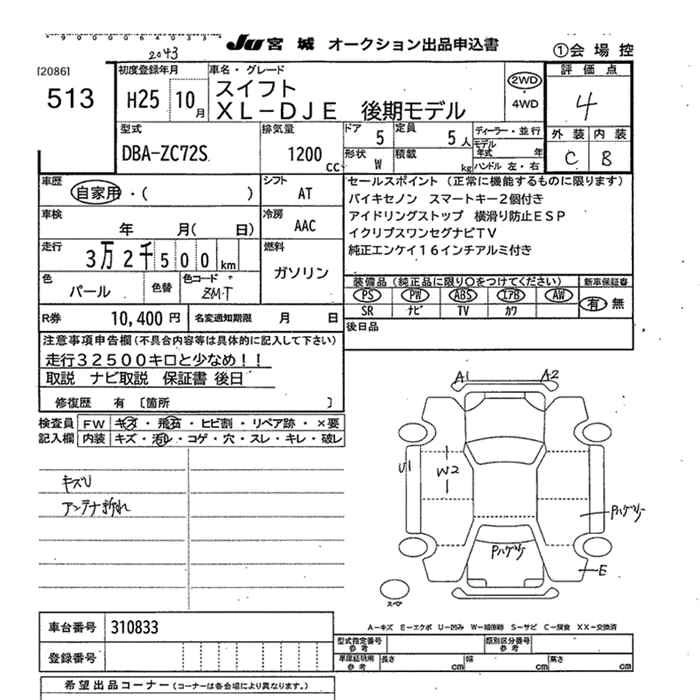 2043
JU 宮城 オークション出品申込書
①会場控
[2086]
513
初度登録年月
H25 10月
車名・グレード
スイフト
XL-DJE 後期モデル
2WD
・
4WD
評価点
4
外装 内装
C B
型式
DBA-ZC72S
排気量
1200 cc
ドア 5
定員 5人
形状 W
積載 kg
ディーラー・並行
モデル年式 年
ハンドル 左・右
車歴
自家用・( )
シフト
AT
車検
年 月( 日)
冷房
AAC
走行
3万2千500km
燃料
ガソリン
色
パール
色替
色コード
ZMT
R券 10,400円
名変通知期限 月 日
セールスポイント (正常に機能するものに限ります)
バイキセノン スマートキー2個付き
アイドリングストップ 横滑り防止ESP
イクリプスワンセグナビTV
純正エンケイ16インチアルミ付き
装備品(純正品に限り○をつけてください)
新車保証書
PS PW ABS エアB AW
有・無
SR ナビ TV カワ
後日品
注意事項申告欄(不具合内容等は具体的に記入して下さい)
走行32500キロと少なめ!!
取説 ナビ取説 保証書 後日
修復歴 有 [箇所 ]
検査員記入欄
FW キズ・飛石・ヒビ割・リペア跡・×要
内装 キズ・汚レ・コゲ・穴・スレ・キレ・破レ
キズU
アンテナ折れ
A1 A2
U1
W2
Pハゲ
Pハゲ
E
スペア
A-キズ E-エクボ U-凹み W-補修跡 S-サビ C-腐食 XX-交換済
車台番号 310833
登録番号
型式指定番号 参考
類別区分番号 参考
車庫証明用 参考 長さ cm 幅 cm 高さ cm
希望出品コーナー(コーナーは各会場により異なります。)